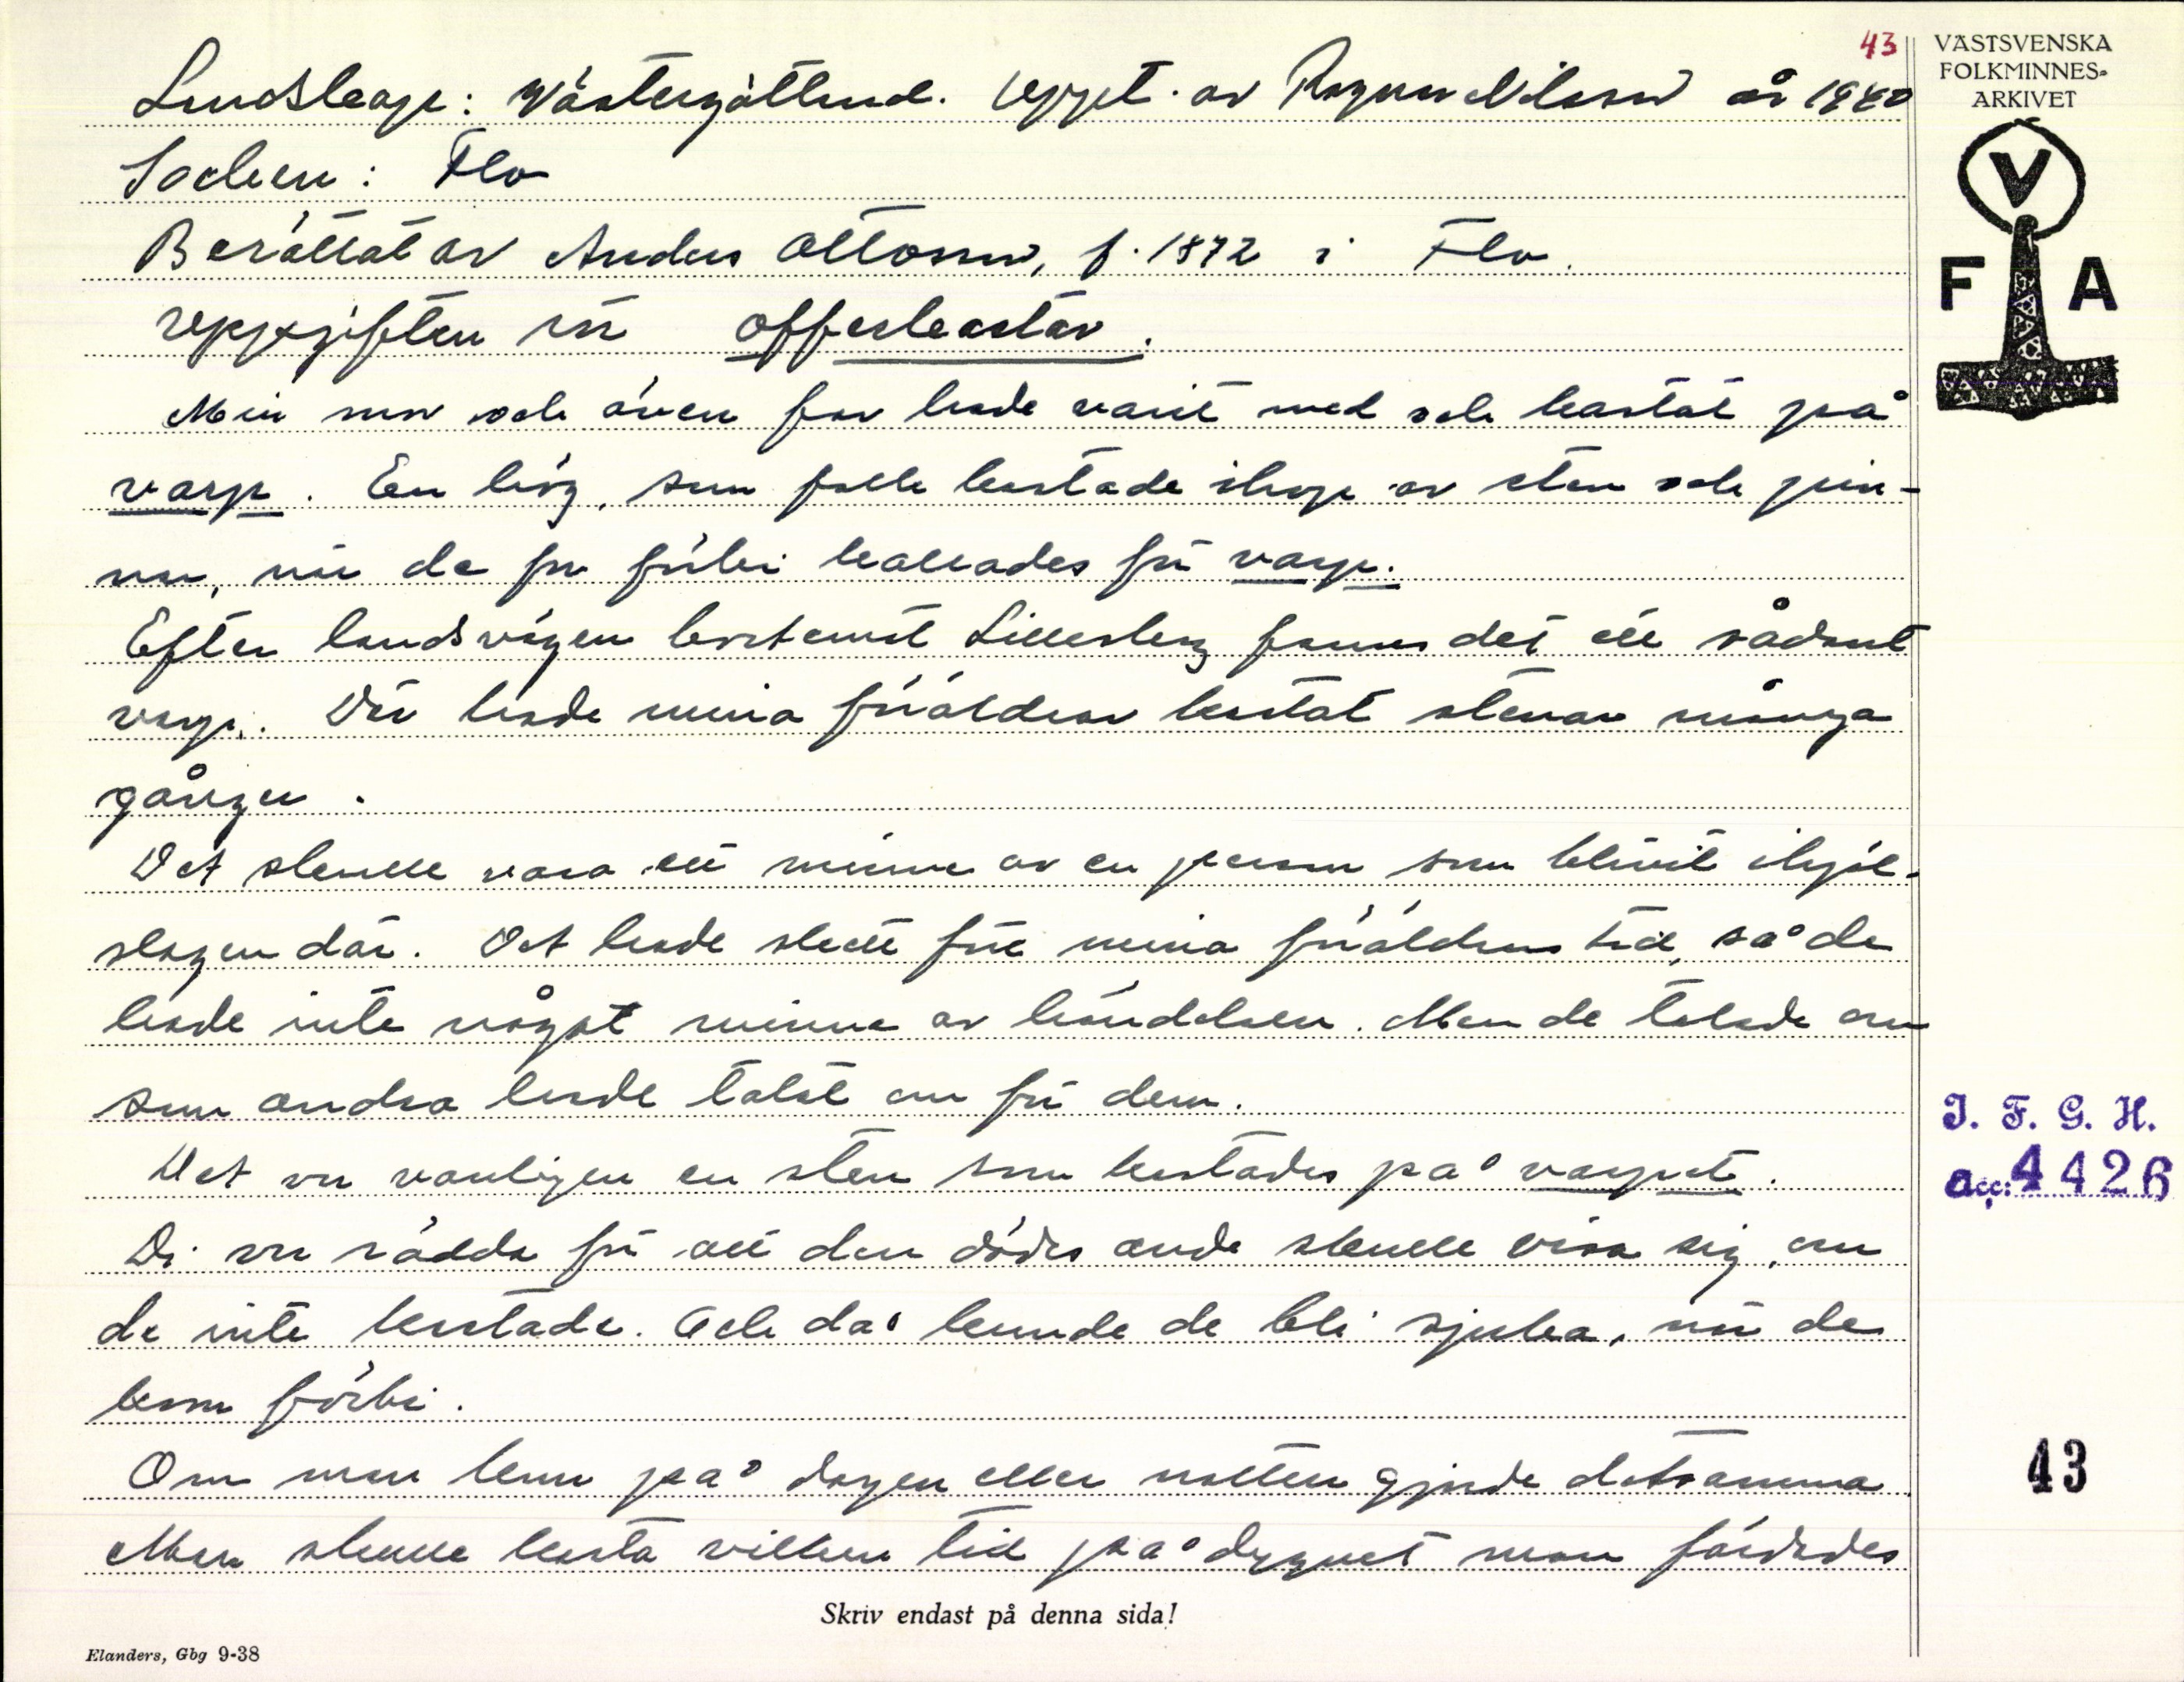 43
VÄSTSVENSKA
FOLKMINNES-
ARKIVET
V
F A
Landskap: Västergötland. Uppt. av Ragnar Nilsson år 1940
Socken: Flo
Berättat av Anders Ottosson, f. 1872 i Flo.
Uppgiften är offerkastar.
Min mor och även far hade varit med och kastat på
varp. En hög, som folk kastade ihop av sten och pin-
nar, när de for förbi kallades för varp.
Efter landsvägen bortemot Lillesberg fanns det ett sådant
varp. Där hade mina föräldrar kastat stenar många
gånger.
Det skulle vara ett minne av en person som blivit ihjäl-
slagen där. Det hade skett före mina föräldrars tid, så de
hade inte något minne av händelsen. Men de talade om
som andra hade talat om för dem.
Det var vanligen en sten som kastades på varpet.
De var rädda för att den dödes ande skulle visa sig, om
de inte kastade. Och då kunde de bli sjuka, när de
kom förbi.
Om man kom på dagen eller natten gjorde detsamma.
Man skulle kasta vilken tid på dygnet man färdades
J. F. G. H.
acc: 4426
43
Skriv endast på denna sida!
Elanders, Gbg 9-38